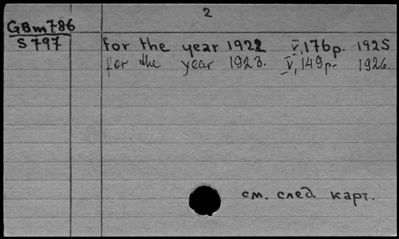 2
GBm786
S797
for the year 1922 V, 176p. 1925
for the year 1923. V, 149p. 1926.
см. след. карт.